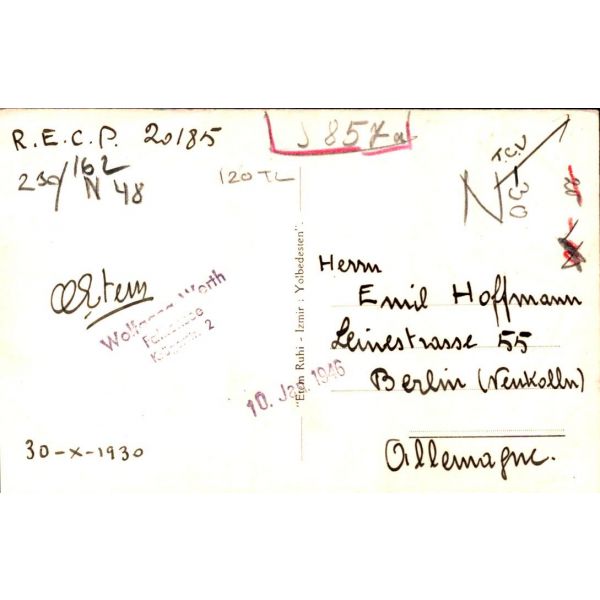 R.E.C.P. 20185
250/162
N 48
120 TL
J 857a
T.C.V
N-30
Wolfgang Werth
10. Jan. 1946
"Etem Ruhi - Izmir : Yolbedesten".
Herrn
Emil Hoffmann
Leinestrasse 55
Berlin (Neukolln)
Allemagne.
30-X-1930